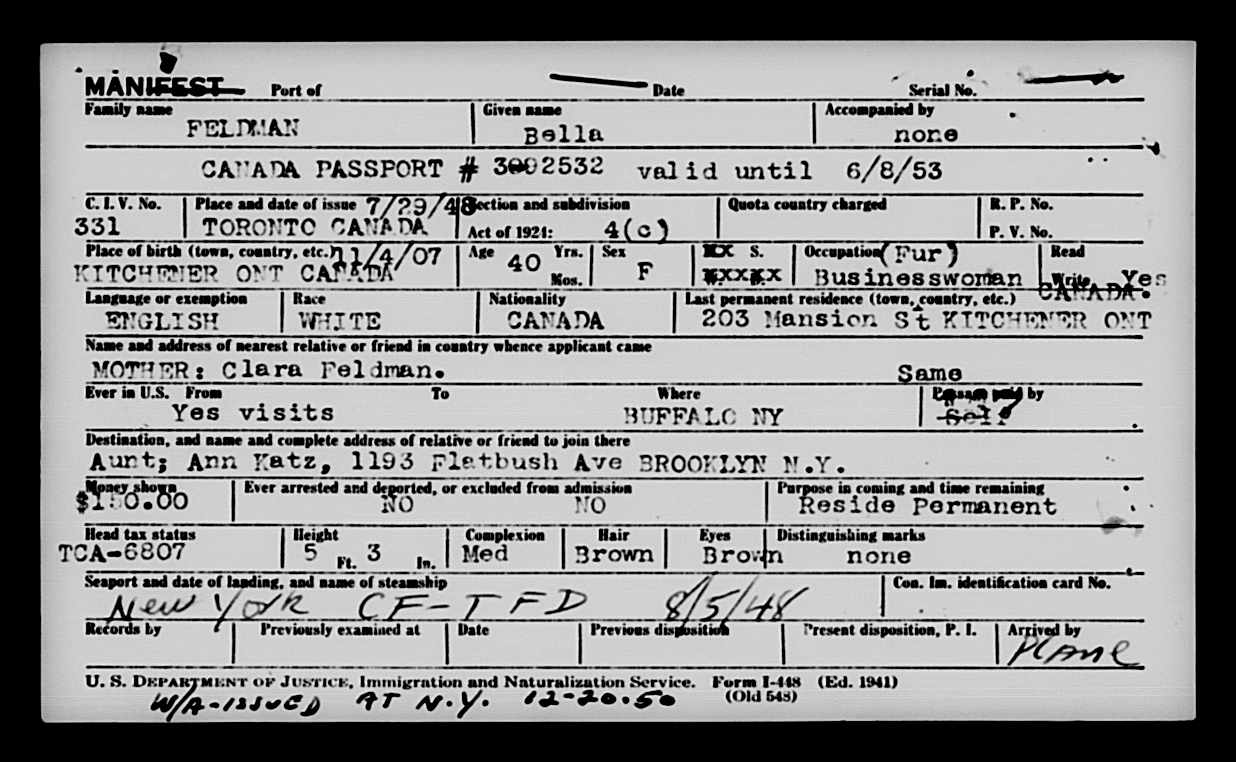 MANIFEST Port of Date Serial No.
Family name Given name Accompanied by
FELDMAN Bella none
CANADA PASSPORT # 3092532 valid until 6/8/53
C. I. V. No. Place and date of issue 7/29/48 Section and subdivision Quota country charged R. P. No.
331 TORONTO CANADA Act of 1924: 4(c) P. V. No.
Place of birth (town, country, etc.) 11/4/07 Age Yrs. Sex S. Occupation (Fur) Read
KITCHENER ONT CANADA 40 Mos. F Businesswoman Write Yes
Language or exemption Race Nationality Last permanent residence (town, country, etc.) CANADA.
ENGLISH WHITE CANADA 203 Mansion St KITCHENER ONT
Name and address of nearest relative or friend in country whence applicant came
MOTHER: Clara Feldman. Same
Ever in U.S. From To Where Passage paid by
Yes visits BUFFALO NY Self
Destination, and name and complete address of relative or friend to join there
Aunt; Ann Katz, 1193 Flatbush Ave BROOKLYN N.Y.
Money shown Ever arrested and deported, or excluded from admission Purpose in coming and time remaining
$150.00 NO NO Reside Permanent
Head tax status Height Complexion Hair Eyes Distinguishing marks
TCA-6807 5 Ft. 3 In. Med Brown Brown none
Seaport and date of landing, and name of steamship Con. Im. identification card No.
New York CF-TFD 8/5/48
Records by Previously examined at Date Previous disposition Present disposition, P. I. Arrived by
Plane
U. S. DEPARTMENT OF JUSTICE, Immigration and Naturalization Service. Form I-448 (Ed. 1941)
(Old 548)
W/A-ISSUED AT N.Y. 12-20-50